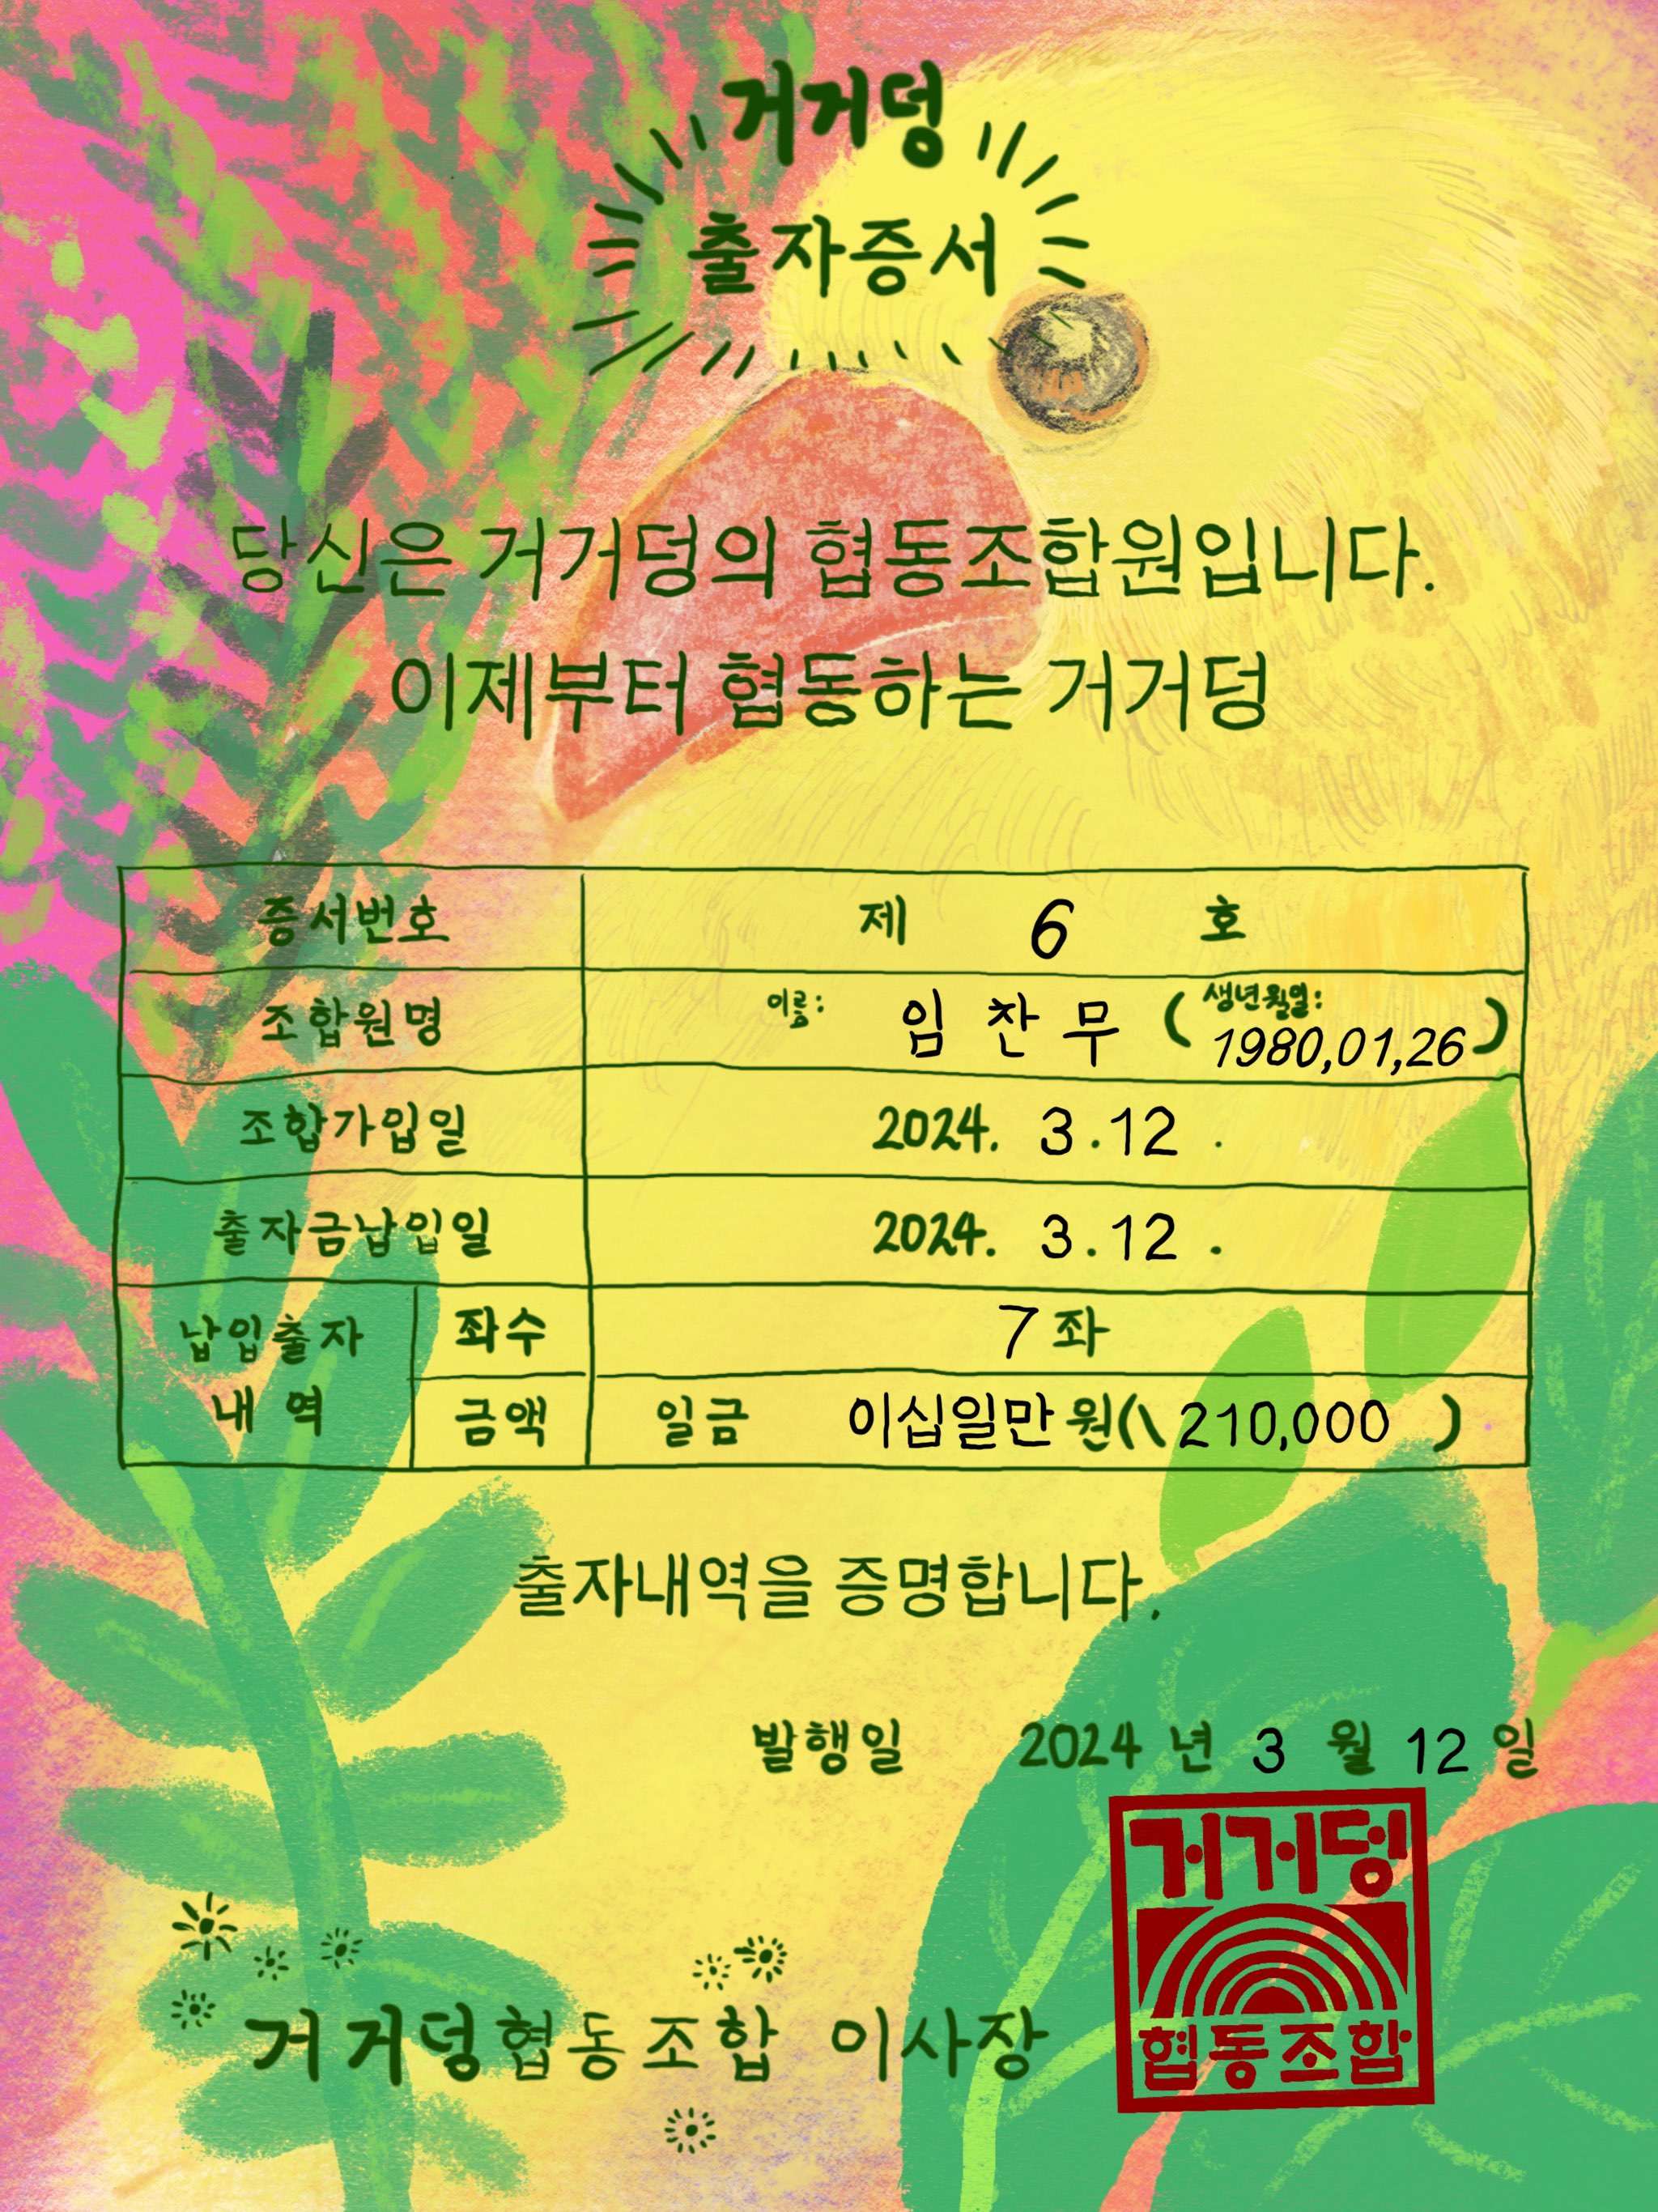 거거덩
출자증서
당신은 거거덩의 협동조합원입니다.
이제부터 협동하는 거거덩
증서번호 제 6 호
조합원명 이름: 임찬무 (생년월일: 1980,01,26)
조합가입일 2024. 3.12 .
출자금납입일 2024. 3.12 .
납입출자 내역 좌수 7좌
금액 일금 이십일만원(\ 210,000 )
출자내역을 증명합니다.
발행일 2024 년 3 월 12 일
거거덩협동조합 이사장
거거덩
협동조합